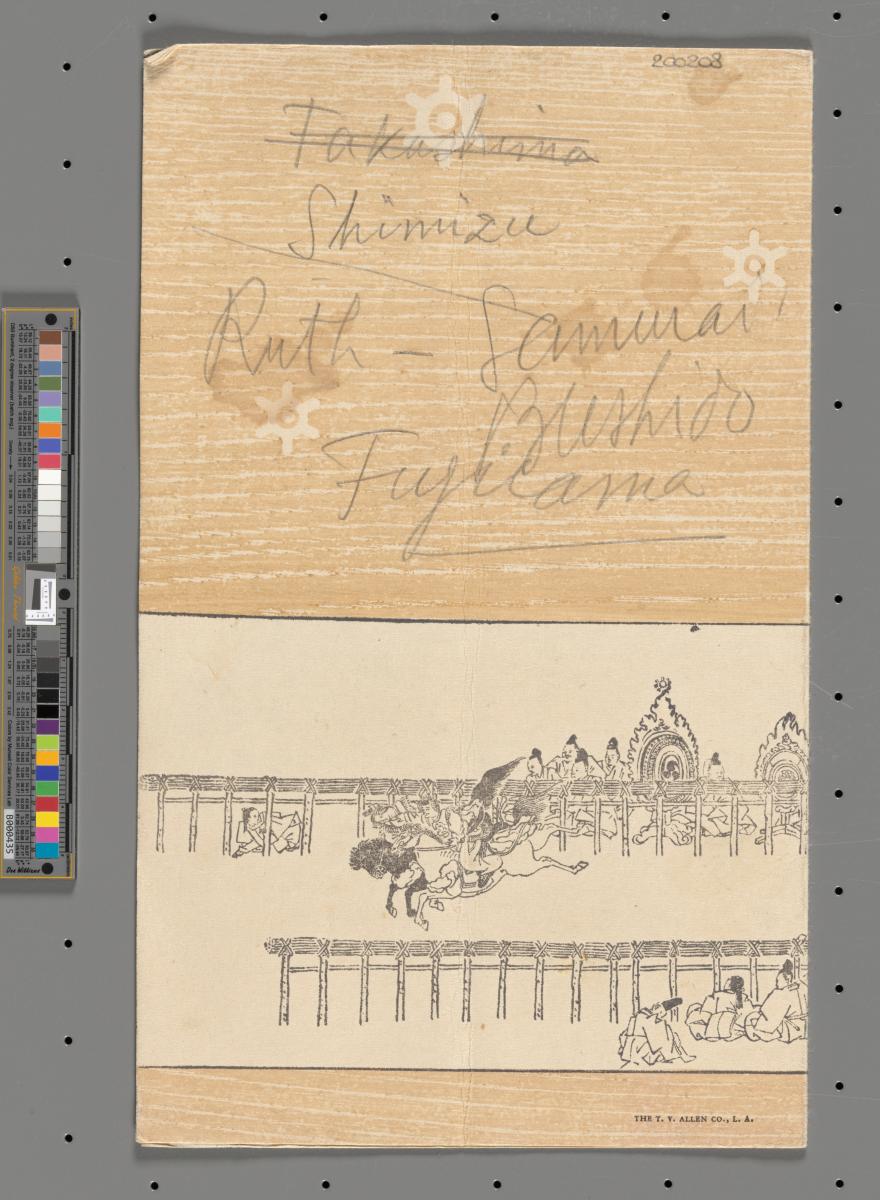 200208
Takashima
Shimizu
Ruth - Samurai
Bushido
Fujicama
THE T. V. ALLEN CO., L. A.
B000435
Don Williams